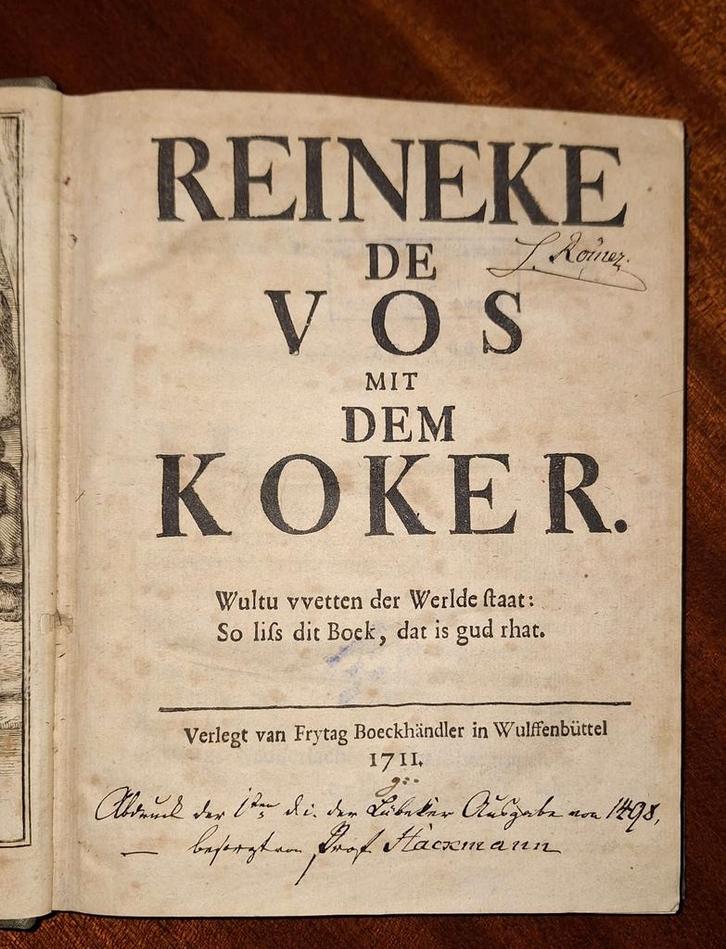 REINEKE
DE
VOS
MIT
DEM
KOKER.
Wultu vvetten der Werlde ſtaat:
So liſs dit Boek, dat is gud rhat.
Verlegt van Frytag Boeckhändler in Wulffenbüttel
1711.
Abdruck der 1ten d. i. der Lübeker Ausgabe von 1498,
besorgt von Prof. Hackmann